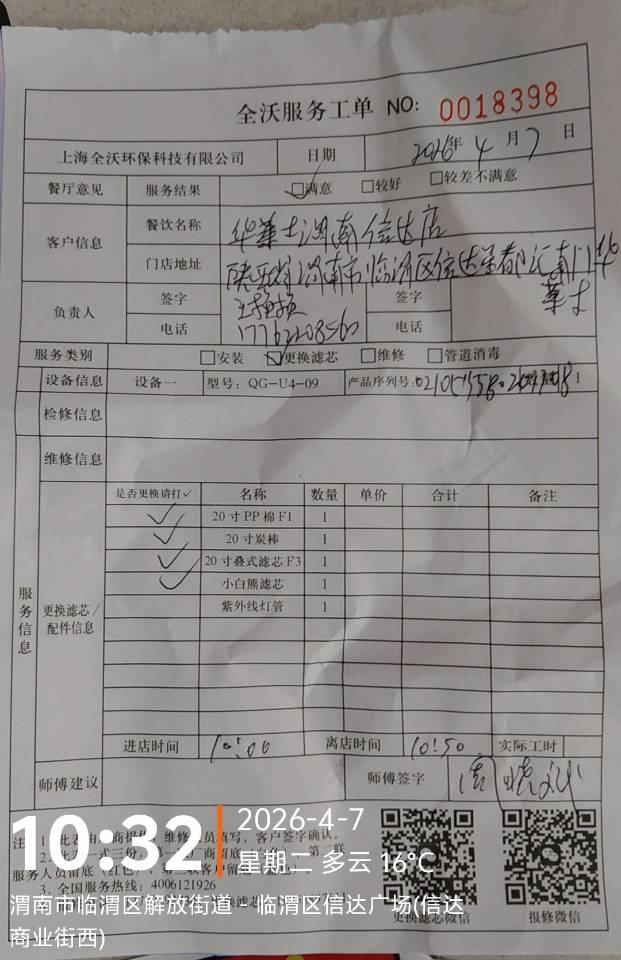 全沃服务工单 NO: 0018398
上海全沃环保科技有限公司 日期 2026年 4 月 7 日
餐厅意见 服务结果 满意 较好 较差不满意
客户信息 餐饮名称 华莱士渭南信达店
门店地址 陕西省渭南市临渭区信达 南门华
莱士
负责人 签字 签字
电话 电话
服务类别 安装 更换滤芯 维修 管道消毒
设备信息 设备一 型号：QG-U4-09 产品序列号：
检修信息
维修信息
服务信息 更换滤芯/配件信息
是否更换请打✓ 名称 数量 单价 合计 备注
✓ 20寸PP棉F1 1
✓ 20寸炭棒 1
✓ 20寸叠式滤芯F3 1
✓ 小白熊滤芯 1
紫外线灯管 1
进店时间 10:00 离店时间 10:50 实际工时
师傅建议 师傅签字
填写，客户签字确认。
3．全国服务热线：4006121926
更换滤芯微信 报修微信
10:32
2026-4-7
星期二 多云 16℃
渭南市临渭区解放街道 - 临渭区信达广场(信达
商业街西)